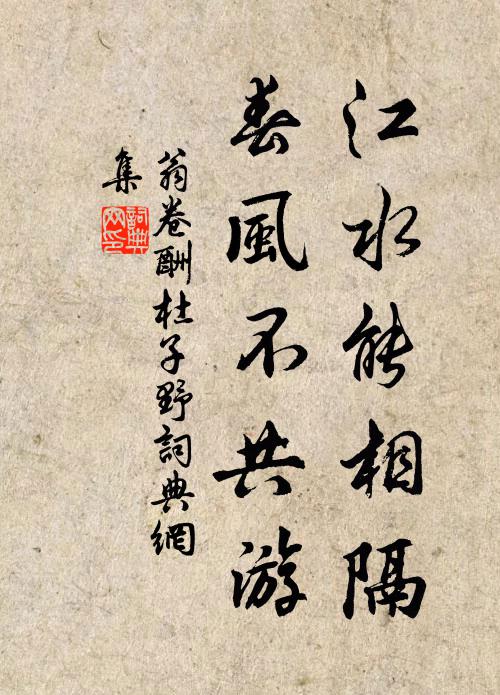 江水能相隔
春風不共游
翁卷酬杜子野詞典網
集
詞典
网印